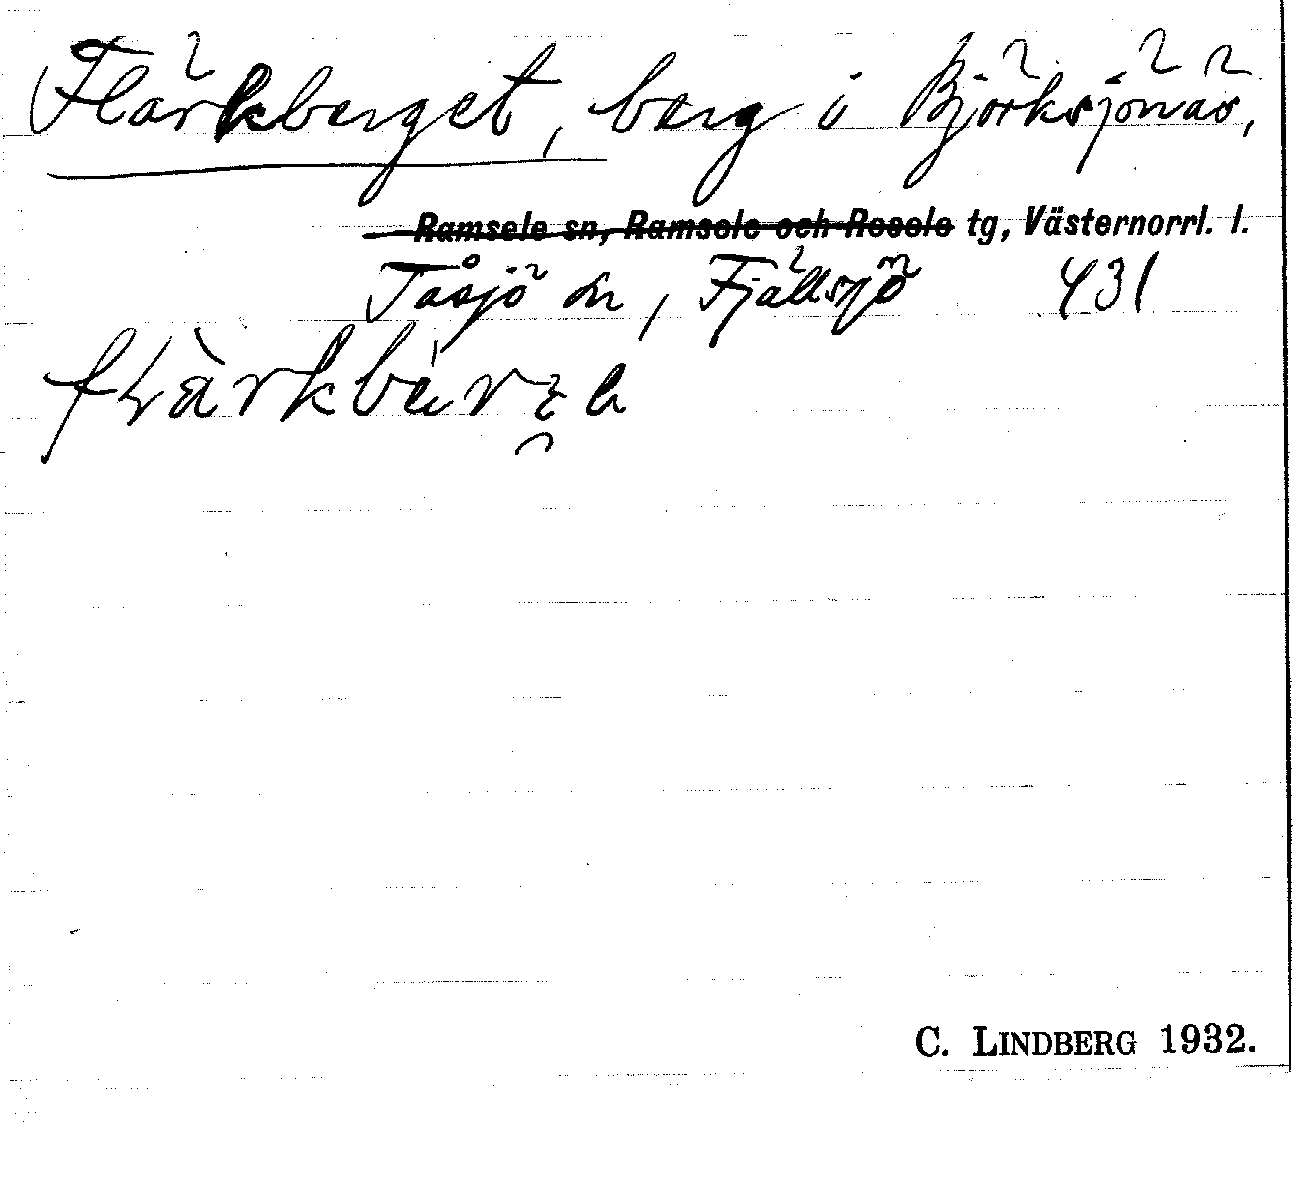 Flärkberget, berg i Björksjönäs,
Ramsele sn, Ramsele och Resele tg, Västernorrl. l.
Tåsjö sn, Fjällsjö 431
C. LINDBERG 1932.